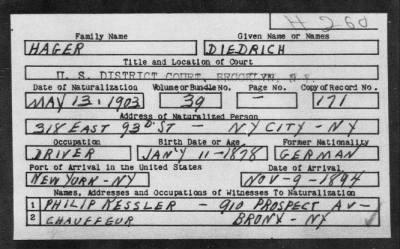 H 260
Family Name Given Name or Names
HAGER DIEDRICH
Title and Location of Court
U. S. DISTRICT COURT, BROOKLYN, N.Y.
Date of Naturalization Volume or Bundle No. Page No. Copy of Record No.
MAY 13, 1903 39 — 171
Address of Naturalized Person
318 EAST 93D ST — NY CITY - NY
Occupation Birth Date or Age Former Nationality
DRIVER JAN'Y 11-1878 GERMAN
Port of Arrival in the United States Date of Arrival
NEW YORK - NY NOV-9-1894
Names, Addresses and Occupations of Witnesses To Naturalization
1 PHILIP KESSLER — 910 PROSPECT AV —
2 CHAUFFEUR BRONX - NY